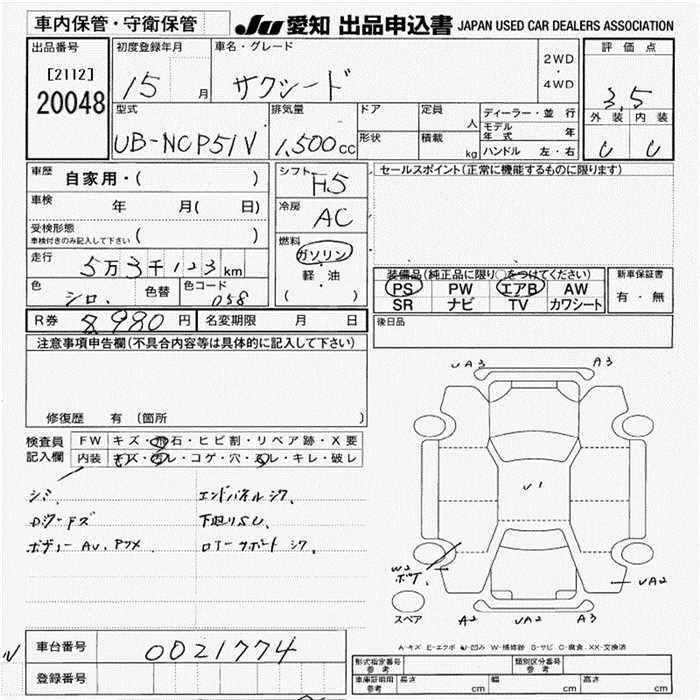 車内保管・守衛保管
JU 愛知 出品申込書 JAPAN USED CAR DEALERS ASSOCIATION
出品番号
[2112]
20048
初度登録年月
15 月
車名・グレード
サクシード
2WD
・
4WD
評価点
3.5
外装 内装
C C
型式
UB-NCP51V
排気量
1,500cc
ドア
形状
定員
人
積載
kg
ディーラー・並行
モデル年式 年
ハンドル 左・右
車歴 自家用・( )
車検 年 月( 日)
受検形態
車検付きのみ記入して下さい ( )
走行
5万3千123km
色 シロ. 色替
色コード 058
シフト H5
冷房 AC
燃料
ガソリン
軽・油
( )
セールスポイント(正常に機能するものに限ります)
装備品(純正品に限り○をつけてください)
PS PW エアB AW
SR ナビ TV カワシート
新車保証書
有・無
R券 8,980円 名変期限 月 日
後日品
注意事項申告欄(不具合内容等は具体的に記入して下さい)
修復歴 有 (箇所 )
検査員
記入欄
FW キズ・飛石・ヒビ割・リペア跡・X要
内装 キズ・汚レ・コゲ・穴・スレ・キレ・破レ
シミ
エンドパネルシワ.
下廻りSし
ロアーサポートシワ.
UA3 A3
U1
W2
UA2
スペア
A2 UA2 A3
A-キズ E-エクボ U-凹み W-補修跡 S-サビ C-腐食. XX-交換済
車台番号 0021774
登録番号
形式指定番号
参考
類別区分番号
参考
車庫証明用
参考
長さ cm 幅 cm 高さ cm